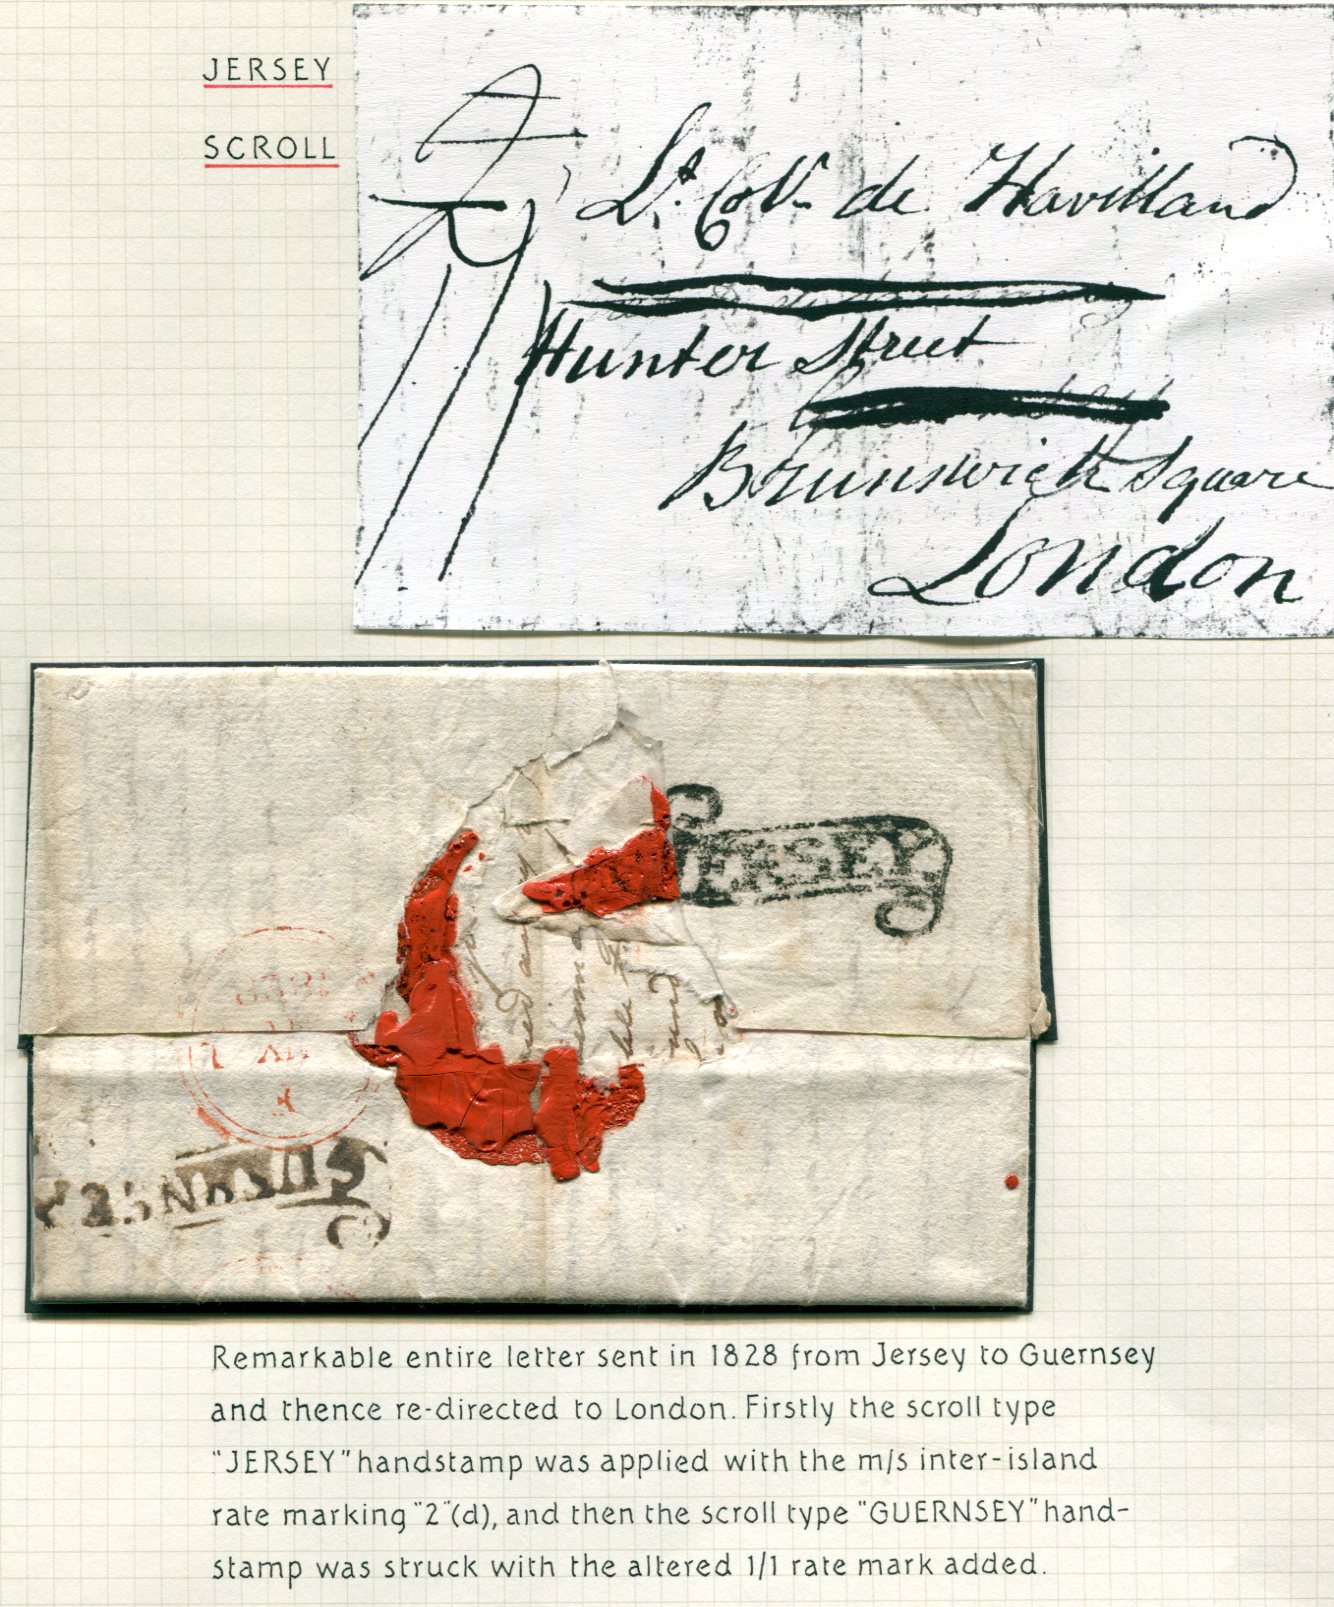 JERSEY
SCROLL
2
Lt. Col. de Havilland
Hunter Street
Brunswick Square
London
JERSEY
GUERNSEY
Remarkable entire letter sent in 1828 from Jersey to Guernsey
and thence re-directed to London. Firstly the scroll type
"JERSEY" handstamp was applied with the m/s inter-island
rate marking "2"(d), and then the scroll type "GUERNSEY" hand-
stamp was struck with the altered 1/1 rate mark added.